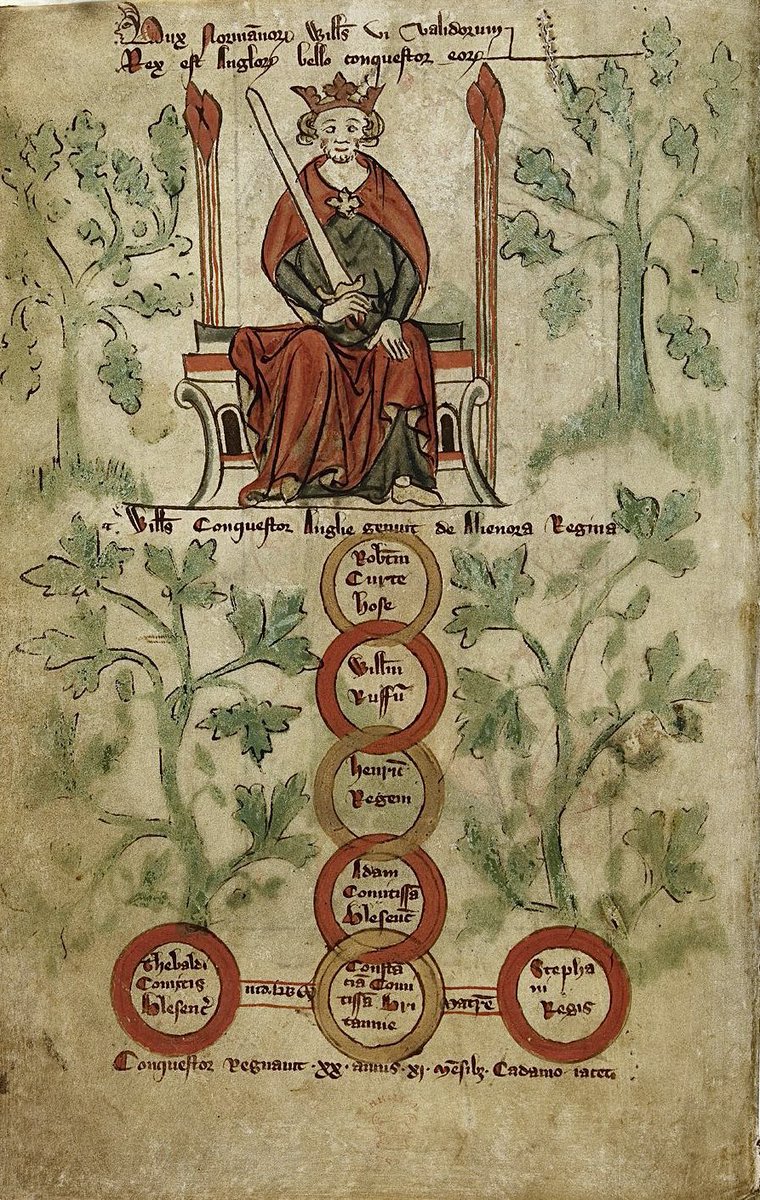 Dux Normãnoꝝ Willɫs vi validorum
Rex est Angloꝝ bello conquestor eoꝝ
Willɫs Conquestor Anglie genuit de Alienora Regina
Robtm
Curte
hose
Willm
Ruffũ
henric̃
Regem
Adam
Comitissã
blesenc̃
Thebaldi
Comitis
blesenc̃
Consta
ciã Comi
tissã Bri
tannie
matrẽ
Stepha
ni
Regis
Conquestor Regnauit · xx · annis · xi · mẽsibꝫ · Cadamo iacet ·